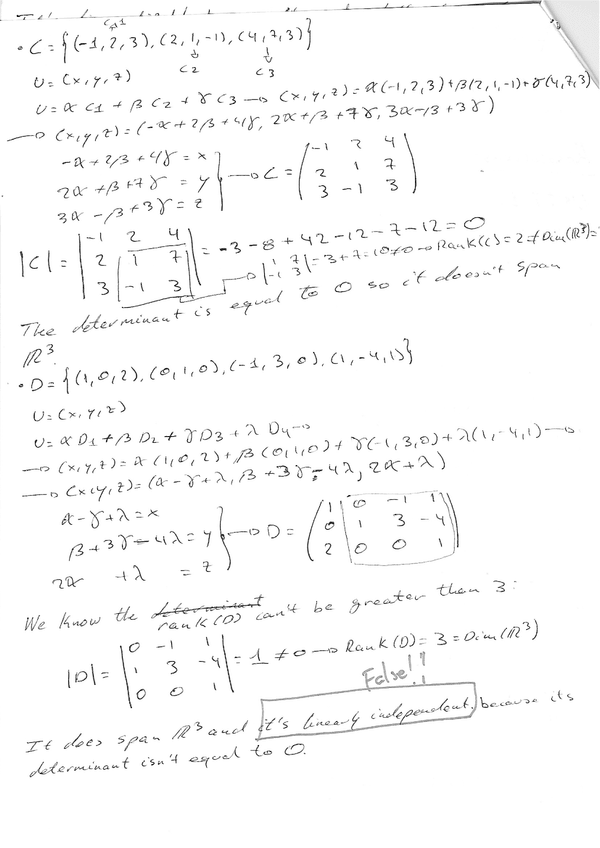 C₁
• C = {(-1,2,3), (2,1,-1), (4,7,3)}
C2 C3
U = (x,y,z)
U = α C1 + β C2 + γ C3 → (x,y,z) = α(-1,2,3) + β(2,1,-1) + γ(4,7,3)
→ (x,y,z) = (-α + 2β + 4γ, 2α + β + 7γ, 3α - β + 3γ)
-α + 2β + 4γ = x
2α + β + 7γ = y → C = (-1 2 4
2 1 7
3α - β + 3γ = z 3 -1 3)
|C| = |-1 2 4
2 1 7
3 -1 3| = -3 - 8 + 42 - 12 - 7 - 12 = 0
→ |1 7
-1 3| = 3 + 7 = 10 ≠ 0 → Rank(C) = 2 ≠ Dim(ℝ³) =
The determinant is equal to 0 so it doesn't span
ℝ³.
• D = {(1,0,2), (0,1,0), (-1,3,0), (1,-4,1)}
U = (x,y,z)
U = α D1 + β D2 + γ D3 + λ D4 →
→ (x,y,z) = α(1,0,2) + β(0,1,0) + γ(-1,3,0) + λ(1,-4,1) →
→ (x,y,z) = (α - γ + λ, β + 3γ - 4λ, 2α + λ)
α - γ + λ = x
β + 3γ - 4λ = y → D = (1 0 -1 1
0 1 3 -4
2α + λ = z 2 0 0 1)
We know the determinant rank(D) can't be greater than 3:
|D| = |0 -1 1
1 3 -4
0 0 1| = 1 ≠ 0 → Rank(D) = 3 = Dim(ℝ³)
False!!
It does span ℝ³ and it's linearly independent, because its
determinant isn't equal to 0.